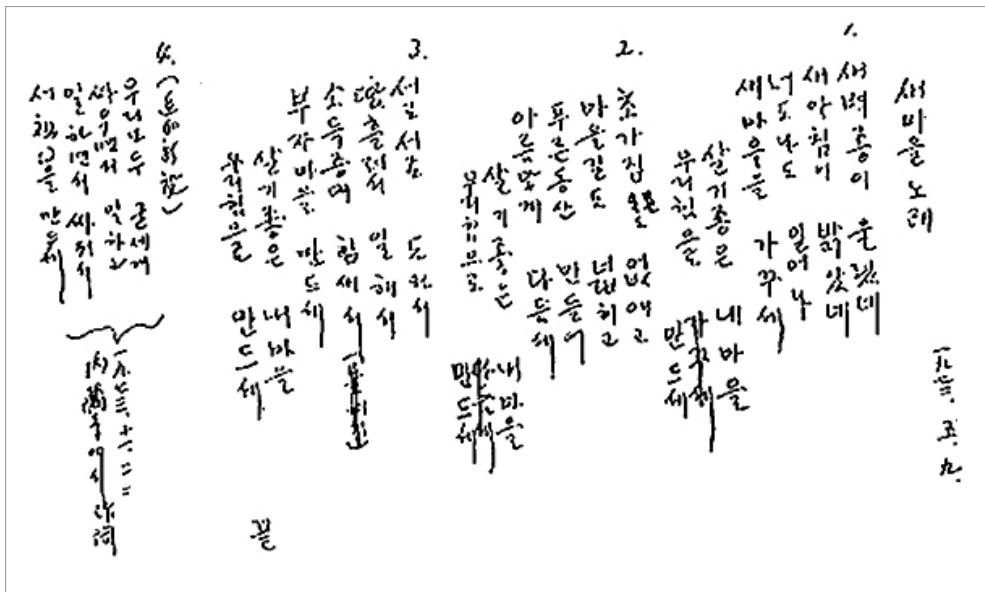 새마을 노래
1.
새벽종이 울렸네
새아침이 밝았네
너도나도 일어나
새마을을 가꾸세
살기좋은 내마을
우리힘으로 만드세
2.
초가집 없애고
마을길도 넓히고
푸른동산 만들어
아름답게 다듬세
살기좋은 내마을
우리힘으로 만드세
3.
서로서로 도와서
땀흘려서 일해서
소득증대 힘써서
부자마을 만드세
살기좋은 내마을
우리힘으로 만드세
끝
4.
우리모두 굳세게
싸우면서 일하고
일하면서 싸워서
새조국을 만드세